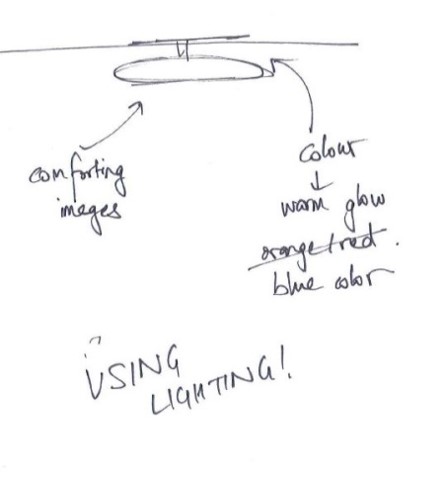 comforting
images
Colour
warm glow
orange/red.
blue color
USING
LIGHTING!